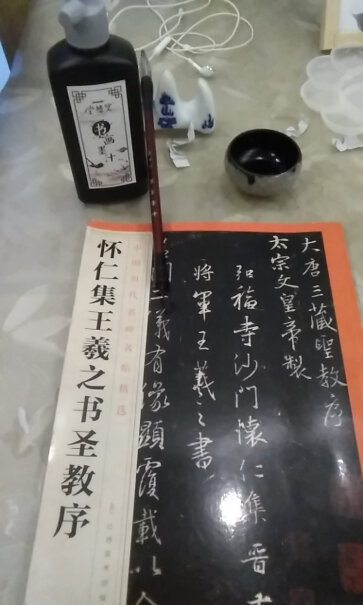 书画墨汁
怀仁集王羲之书圣教序
中国历代名碑名帖精选
大唐三藏聖教序
太宗文皇帝製
弘福寺沙門懷仁集晉
將軍王羲之書
二儀有像顯覆載以